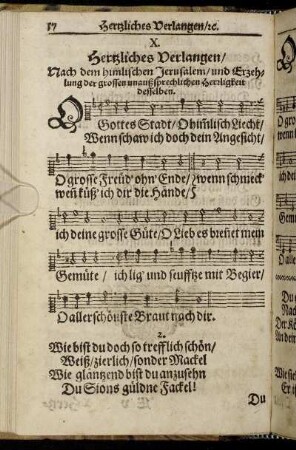 37 Hertzliches Verlangen/ꝛc.
X.
Hertzliches Verlangen/
Nach dem himlischen Jerusalem/ und Erzeh-
lung der grossen unaußsprechlichen Herꝛligkeit
desselben.
O Gottes Stadt/ O him̃lisch Liecht/
Wenn schaw ich doch dein Angesicht/
O grosse Freüd ohn' Ende/ wenn schmeck'
weñ küß' ich dir die Hände/
ich deine grosse Güte/ O Lieb es breñet mein
Gemüte/ ich lig' und seufftze mit Begier/
O allerschönste Braut nach dir.
2.
Wie bist du doch so trefflich schön/
Weiß/ zierlich/ sonder Mackel
Wie gläntzend bist du anzusehn
Du Sions güldne Fackel!
Du